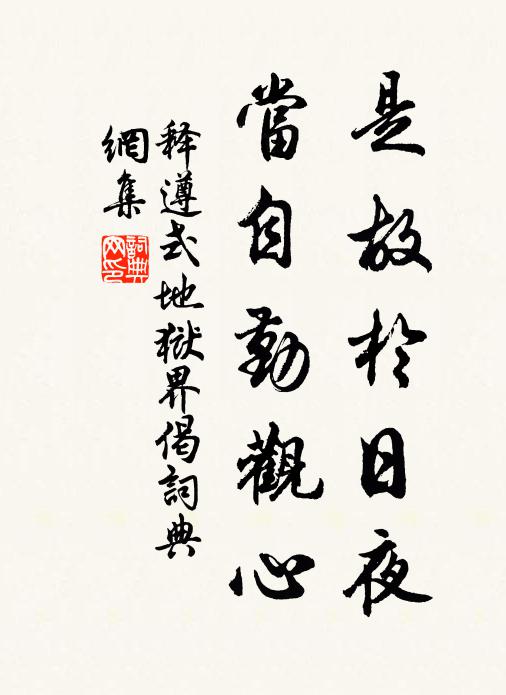 是故於日夜
當自勤觀心
释遵式地獄界偈詞典
網集
詞典
网印